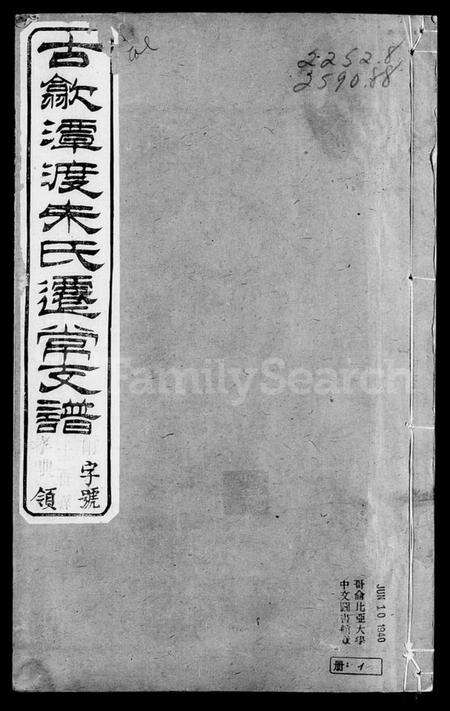 古歙潭渡朱氏遷常支譜
字號
領
col
2252.8
2590.88
FamilySearch
哥倫比亞大學
中文圖書館藏
JUN 10 1940
册: 1